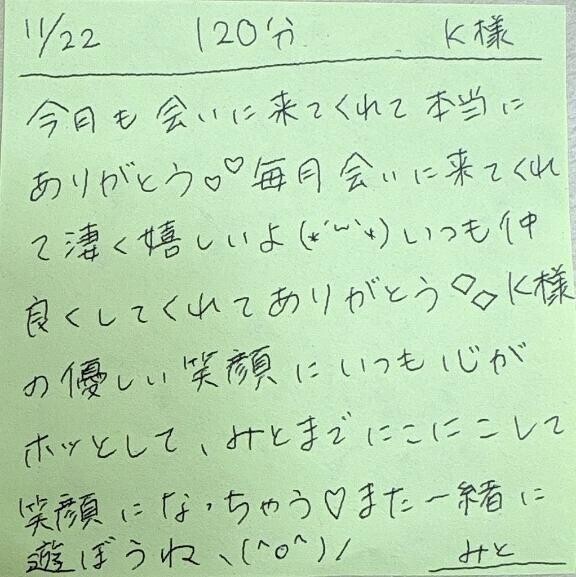 11/22 120分 K様
今月も会いに来てくれて本当に
ありがとう♡♡毎月会いに来てくれ
て凄く嬉しいよ(*´︶`*)いつも仲
良くしてくれてありがとう◇◇K様
の優しい笑顔にいつも心が
ホッとして、みとまでにこにこして
笑顔になっちゃう♡また一緒に
遊ぼうね、(^o^)/ みと